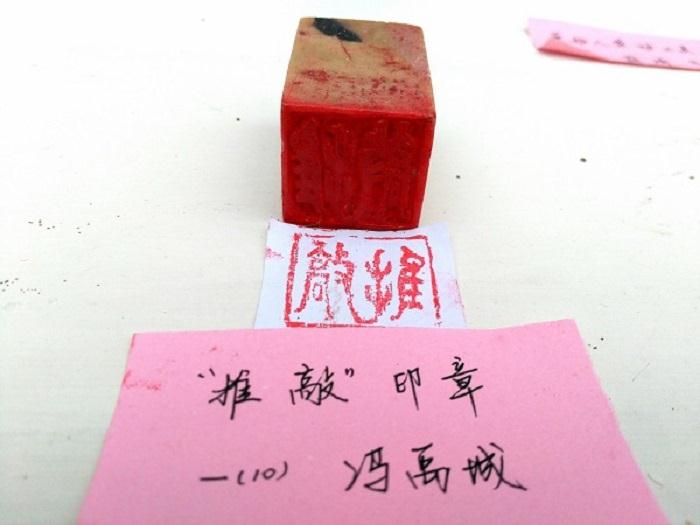 推敲
"推敲"印章
一(10) 冯禹城